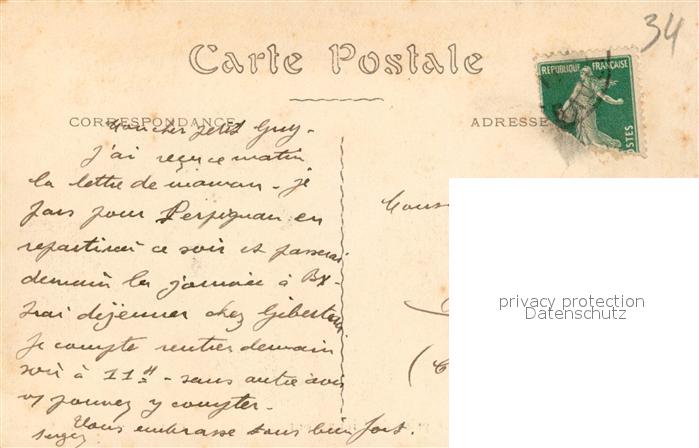 34
Carte Postale
RÉPUBLIQUE FRANÇAISE
POSTES
CORRESPONDANCE
ADRESSE
Mon cher petit Guy -
J'ai reçu ce matin
la lettre de maman - je
pars pour Perpignan en
repartirai ce soir et passerai
demain la journée à Bx -
irai déjeuner chez
Je compte rentrer demain
soir à 11H - sans autre avis
vs pouvez y compter -
Vous embrasse tous bien fort.
privacy protection
Datenschutz